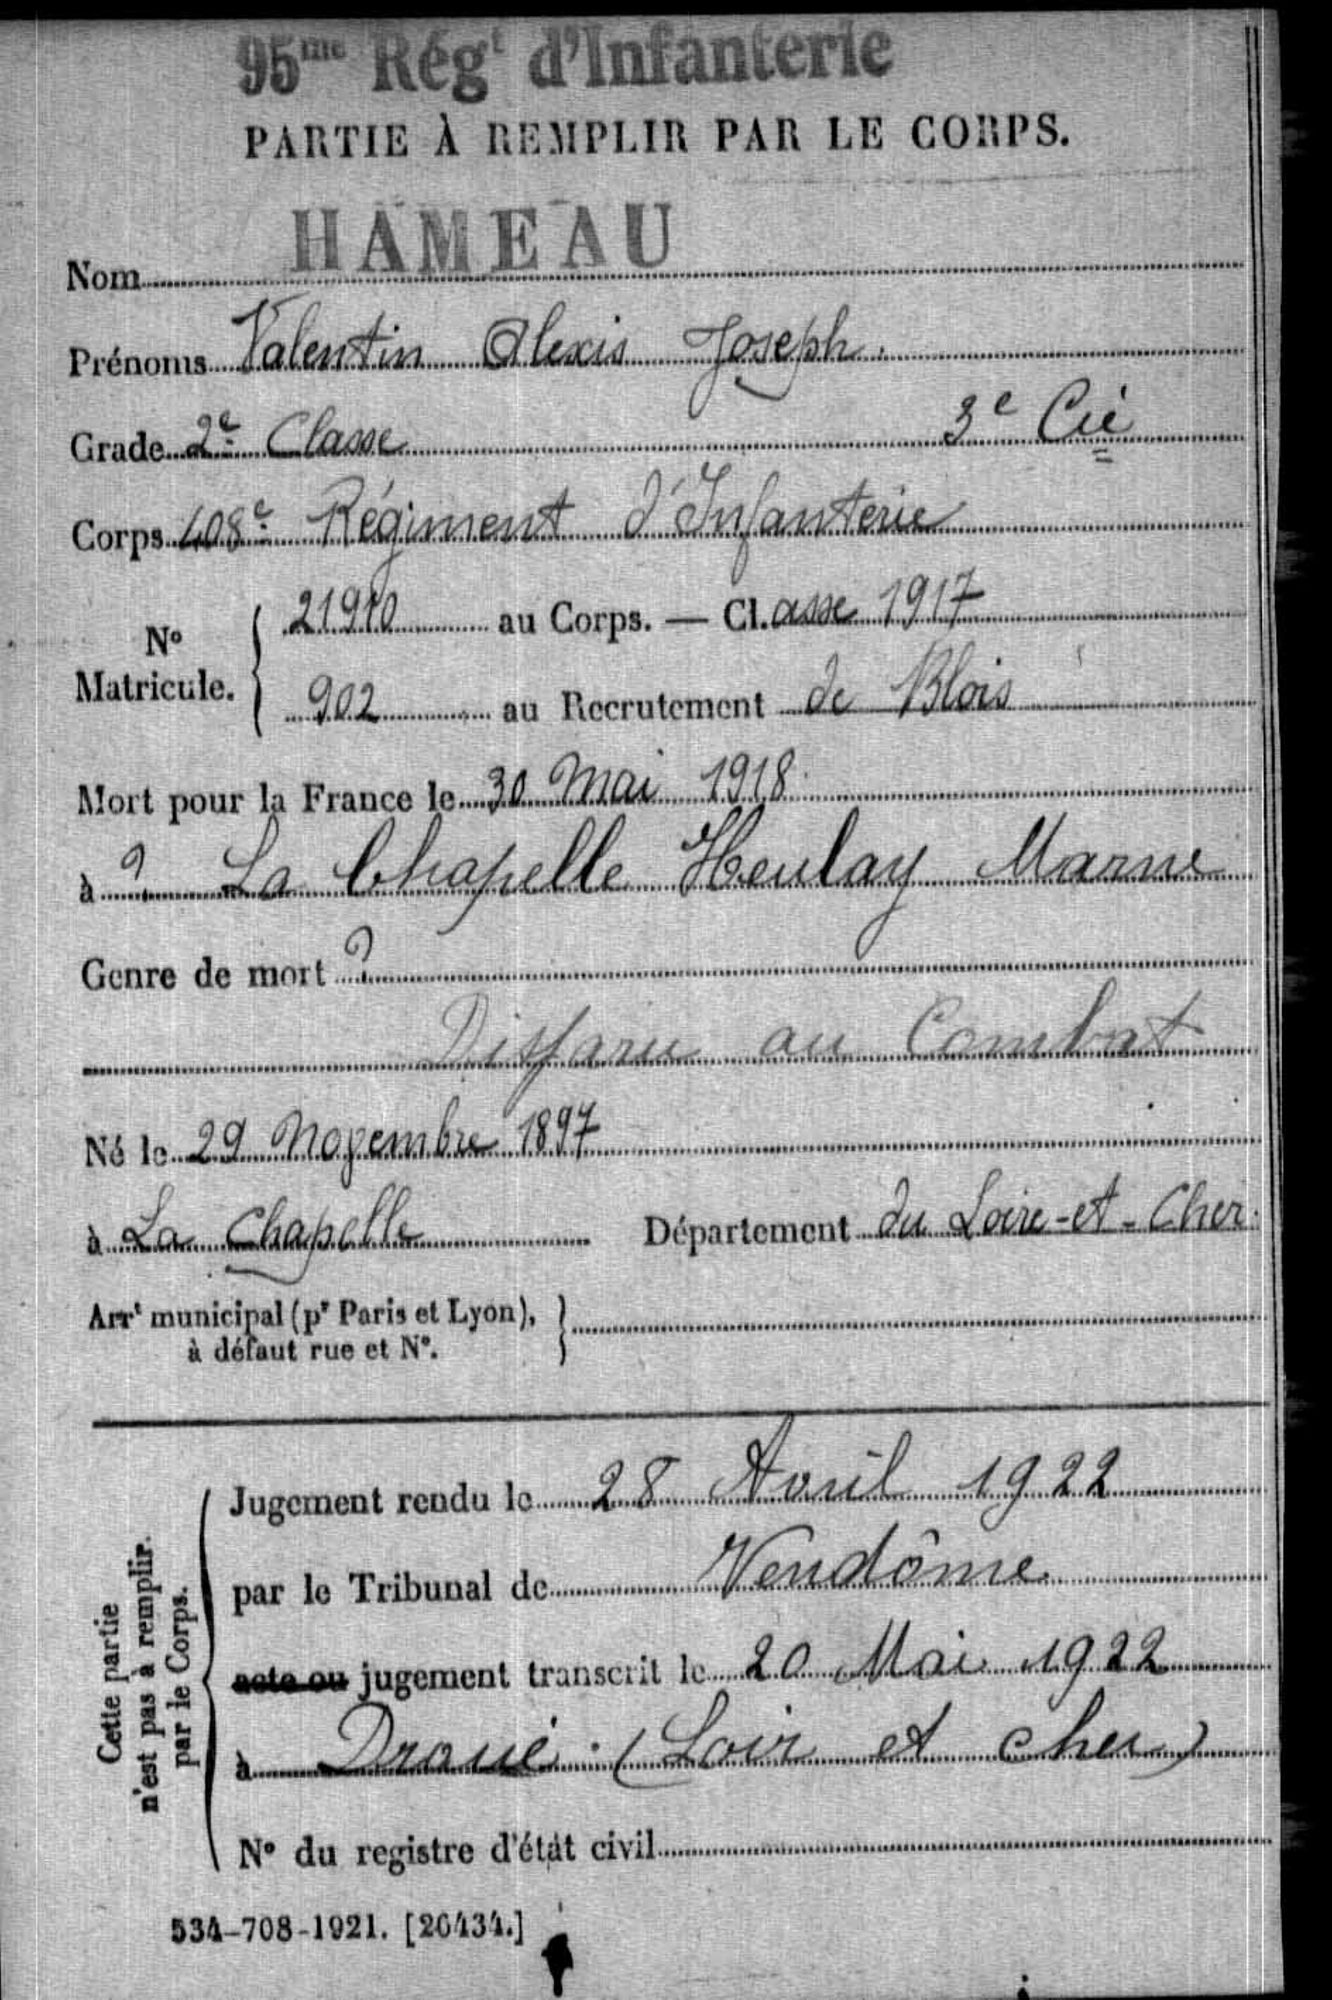 95me Régt d'Infanterie
PARTIE À REMPLIR PAR LE CORPS.
Nom HAMEAU
Prénoms Valentin Alexis Joseph.
Grade 2e Classe 3e Cie
Corps 408e Régiment d'Infanterie
No Matricule. { 21910 au Corps. — Cl.asse 1917
902 au Recrutement de Blois
Mort pour la France le 30 Mai 1918
à ? La Chapelle Heulay Marne
Genre de mort ?
Disparu au Combat
Né le 29 Novembre 1897
à La Chapelle Département du Loire-et-Cher.
Arrt municipal (pr Paris et Lyon), }
à défaut rue et No.
Cette partie
n'est pas à remplir
par le Corps.
Jugement rendu le 28 Avril 1922
par le Tribunal de Vendôme
acte ou jugement transcrit le 20 Mai 1922
à Droué. (Loir et cher)
No du registre d'état civil
534-708-1921. [26434.]